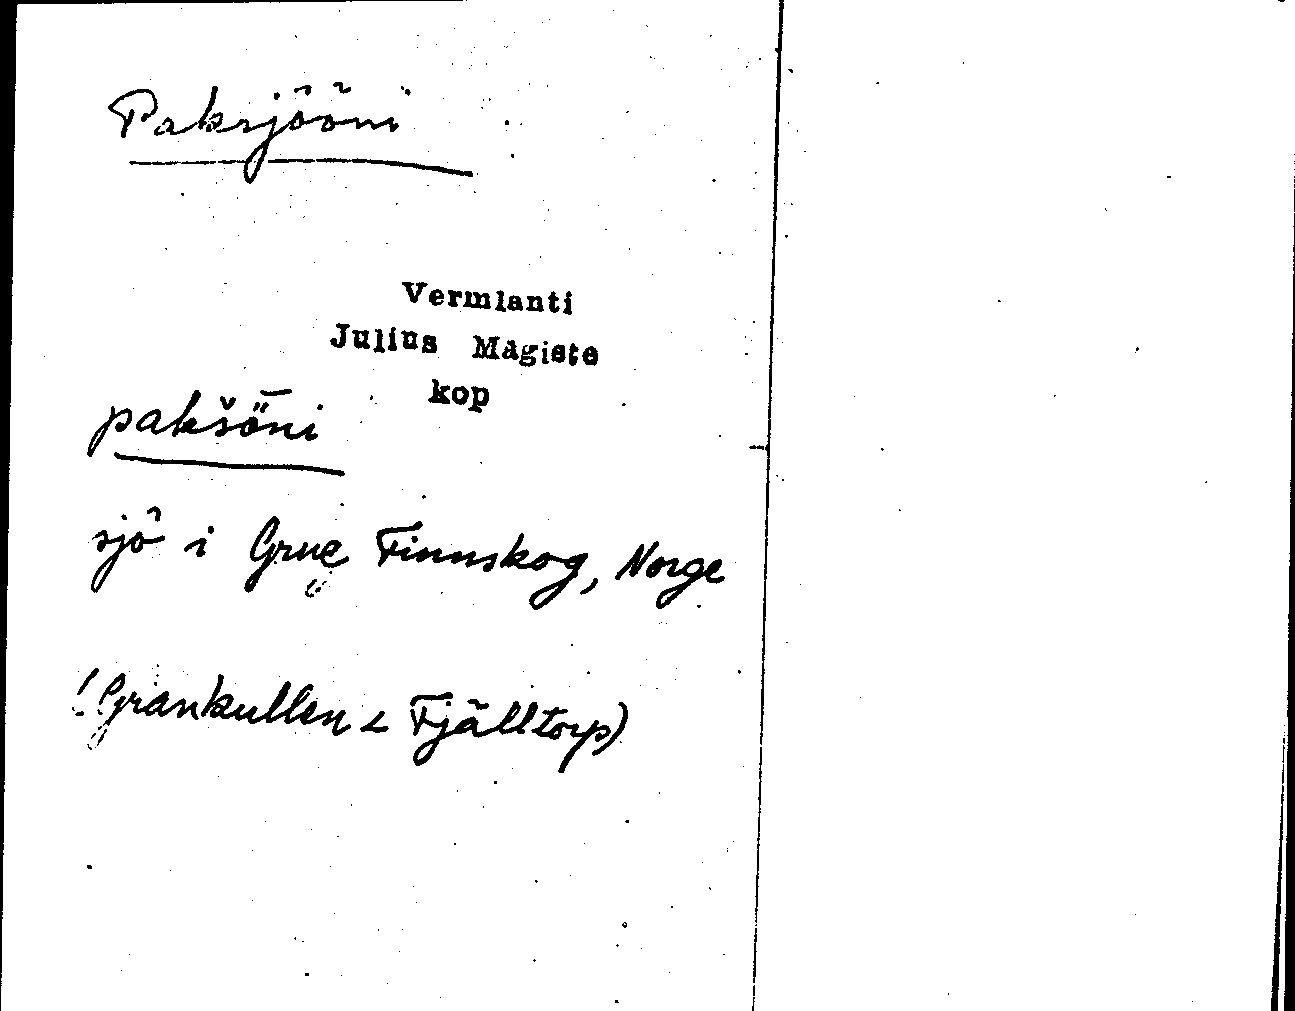 Paksjööni
Vermlanti
Julius Mägiste
kop
pakšö̈̄ni
sjö i Grue Finnskog, Norge
(Grankullen < Fjälltorp)